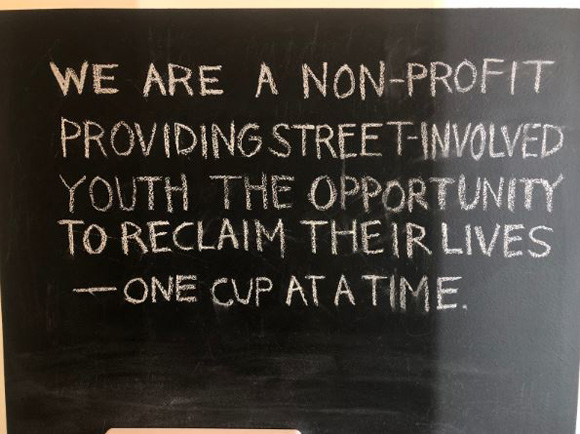 WE ARE A NON-PROFIT
PROVIDING STREET-INVOLVED
YOUTH THE OPPORTUNITY
TO RECLAIM THEIR LIVES
— ONE CUP AT A TIME.